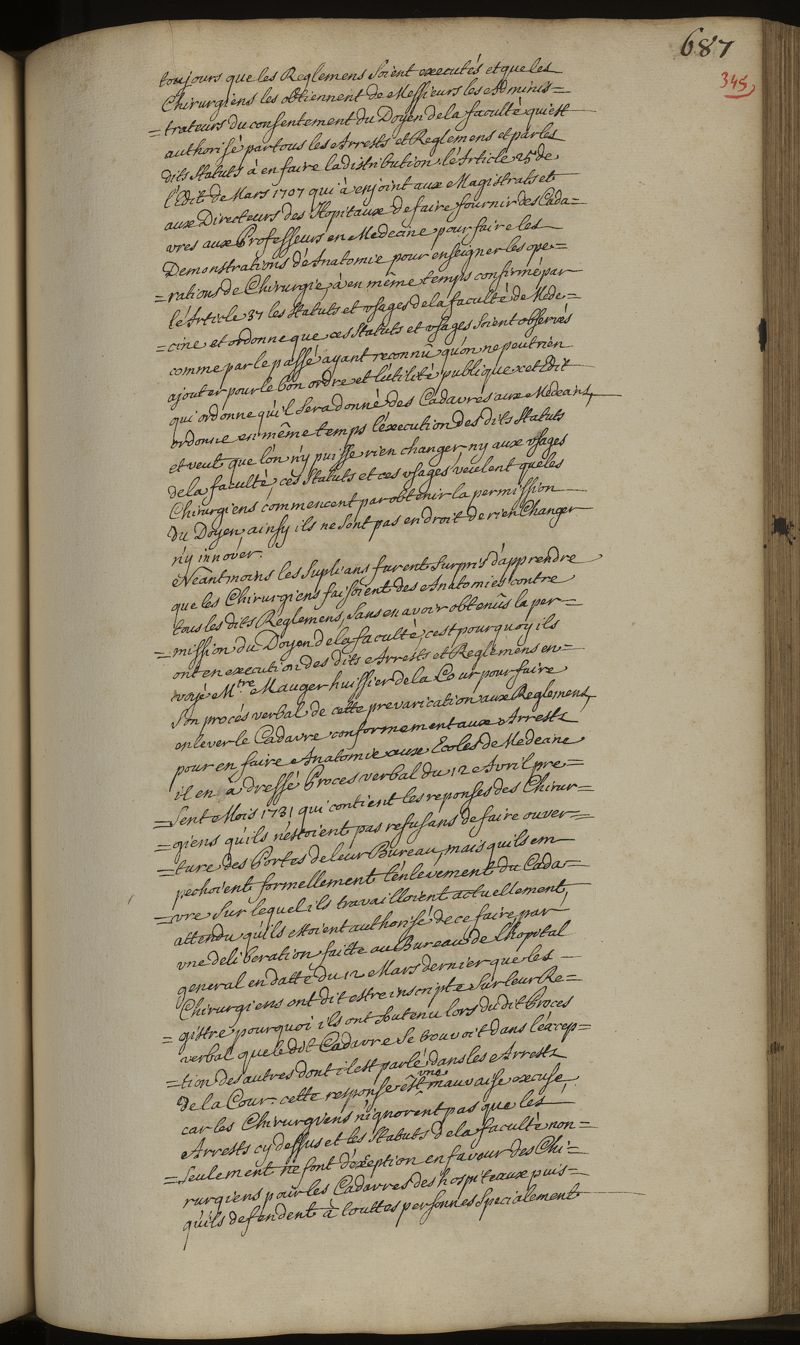 687
345
toujours que les Reglemens soient executés et que les
Chirurgiens les obtiennent de Messieurs les Adminis=
=trateurs du consentement du Doyen de la faculté qui est
authorisé par tous les Arrests et Reglemens et par les
dits Statuts à en faire la distribution, l'Article 25e de
l'Edit de Mars 1707 qui à enjoint aux Magistrats et
aux Directeurs des Hopitaux de faire fournir des Cada=
vres aux Professeurs en Medecine pour faire les
Demonstrations d'Anatomie pour enseigner les ope=
=rations de Chirurgie, à en même temps confirmé par
l'Article 37 les Statuts et usages de la faculté de Mede=
=cine et ordonne que ces Statuts et usages soient observés
comme par le passé ayant reconnû qu'on ne peut rien
ajouter pour le bon ordre et l'utilité publique, cet Edit
qui ordonne qu'il sera donné des Cadavres aux Medecins,
ordonne en même temps l'éxecution des dits Statuts
et veut que l'on n'y puisse rien changer ny aux usages
de la faculté, ces Statuts et ces usages veulent que les
Chirurgiens commencent par obtenir la permission
du Doyen, ainsy ils ne sont pas en droit de rien Changer
n'y innover.
Néantmoins les Suplians furent surpris d'apprendre
que les Chirurgiens faisoient des Anatomies contre
tous les dits Reglemens, sans en avoir obtenûs la per=
=mission du Doyen de la faculté, c'est pourquoy ils
ont en execution des dits Arrests et Reglemens en=
voyé Mtre Mauger huissier de la Cour pour faire
son procés verbal de cette prevarication aux Reglemens,
enlever le Cadavre conformement aux Arrests
pour en faire Anatomie aux Ecoles de Medecine
il en à dressé Proces verbal du 12 Avril pre=
=sent Mois 1731 qui contient les reponses des Chirur=
=giens qu'ils n'étoient pas refusans de faire ouver=
=ture des Portes de leur Bureau, mais qu'ils em
pechoient formellement l'enlevement du Cada=
=vre sur lequel ils travailloient actuellement,
attendu qu'ils étoient authorisé de ce faire, par
une deliberation faitte au Bureau de L'hopital
general en datte du 12 Mars dernier que les
Chirurgiens ont dit estre inscripte sur leur Re=
=gistre, pourquoi ils ont soutenu lors dudit Proces
verbal que le dit Cadavre se trouvoit dans l'éxcep=
=tion des autres dont il est parlé dans les Arrests
de la Cour. cette response est une mauvaise excuse,
car les Chirurgiens n'ignorent pas que les
Arrests cy dessus et les Statuts de la faculté non=
=seulement ne font d'éxeption en faveur des Chi=
rurgiens pour les Cadavres des hospiteaux puis=
qu'ils defendent à touttes personnes specialement